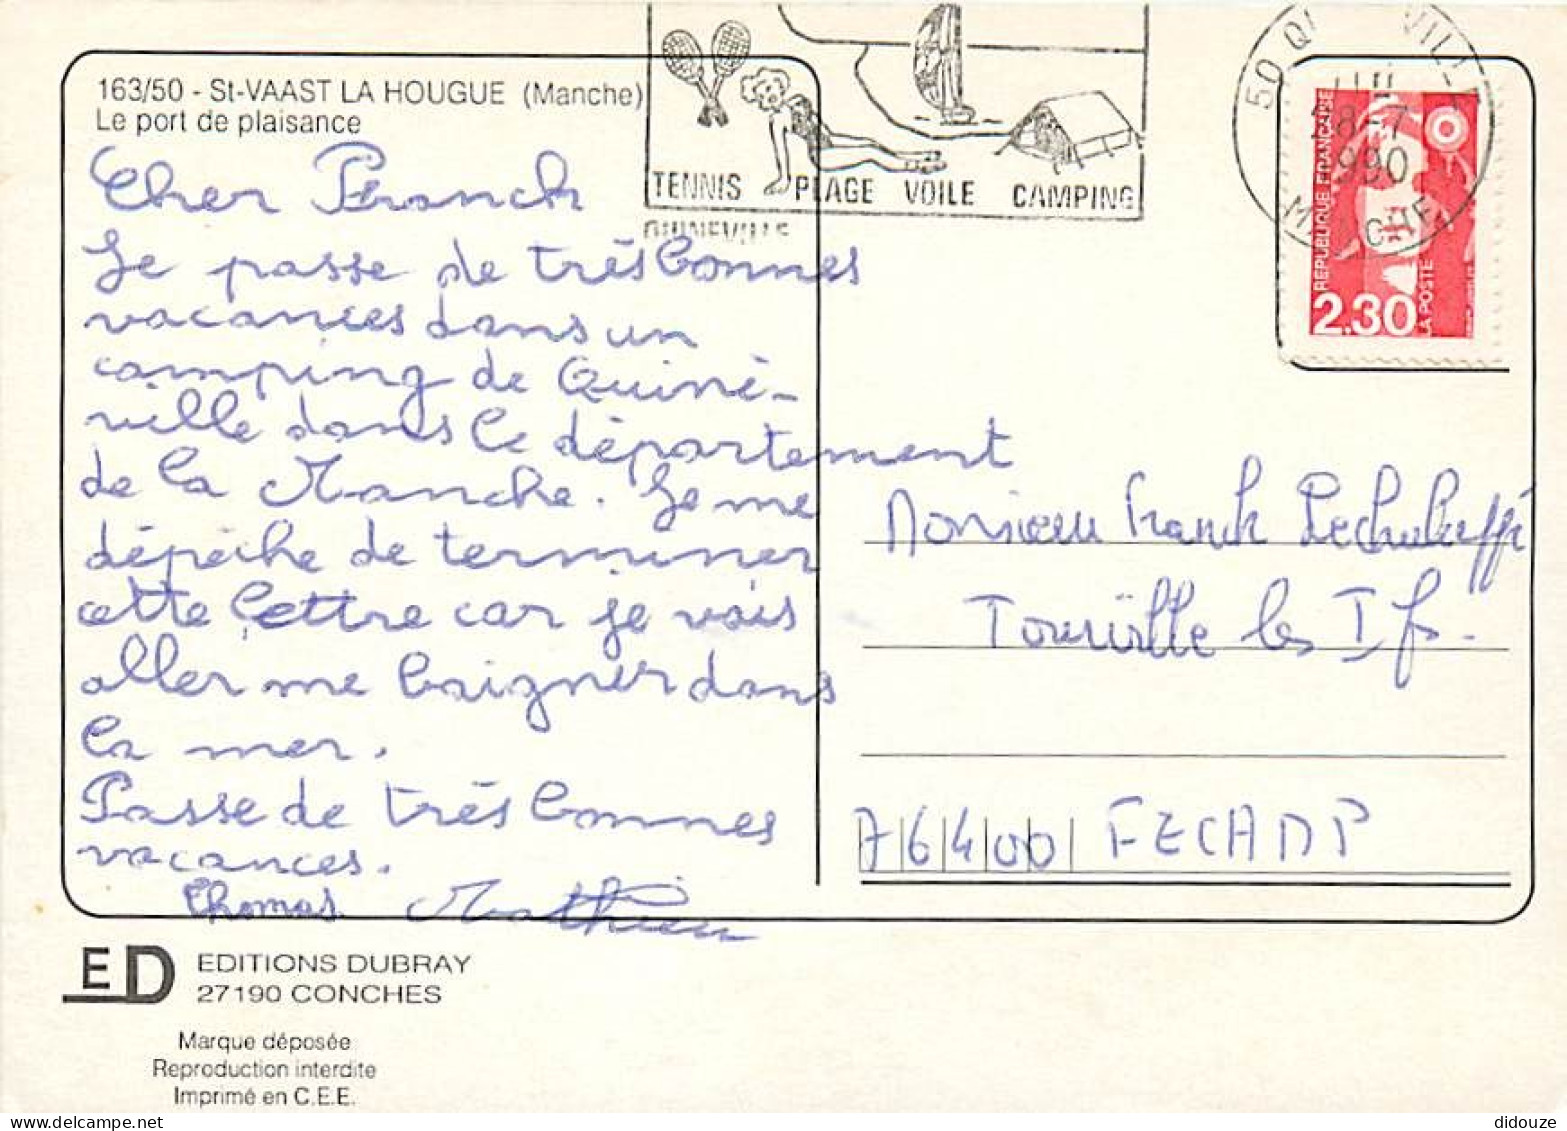 163/50 - St-VAAST LA HOUGUE (Manche)
Le port de plaisance
Cher Franck
Je passe de très bonnes
vacances dans un
camping de Quiné-
ville dans le département
de la Manche. Je me
dépêche de terminer
cette lettre car je vais
aller me baigner dans
la mer.
Passe de très bonnes
vacances.
Thomas Mathieu
TENNIS PLAGE VOILE CAMPING
QUINEVILLE
50 QUINEVILLE
28-7
1990
MANCHE
REPUBLIQUE FRANÇAISE
2.30
LA POSTE
Monsieur Franck
Tourville les Ifs.
76400 FECAMP
ED EDITIONS DUBRAY
27190 CONCHES
Marque déposée
Reproduction interdite
Imprimé en C.E.E.
didouze